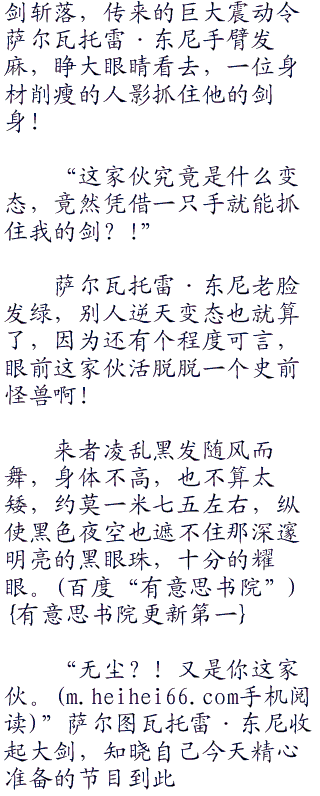 剑斩落，传来的巨大震动令
萨尔瓦托雷·东尼手臂发
麻，睁大眼睛看去，一位身
材削瘦的人影抓住他的剑
身！
“这家伙究竟是什么变
态，竟然凭借一只手就能抓
住我的剑？！”
萨尔瓦托雷·东尼老脸
发绿，别人逆天变态也就算
了，因为还有个程度可言，
眼前这家伙活脱脱一个史前
怪兽啊！
来者凌乱黑发随风而
舞，身体不高，也不算太
矮，约莫一米七五左右，纵
使黑色夜空也遮不住那深邃
明亮的黑眼珠，十分的耀
眼。(百度“有意思书院”)
{有意思书院更新第一}
“无尘？！又是你这家
伙。(m.heihei66.com手机阅
读)”萨尔图瓦托雷·东尼收
起大剑，知晓自己今天精心
准备的节目到此